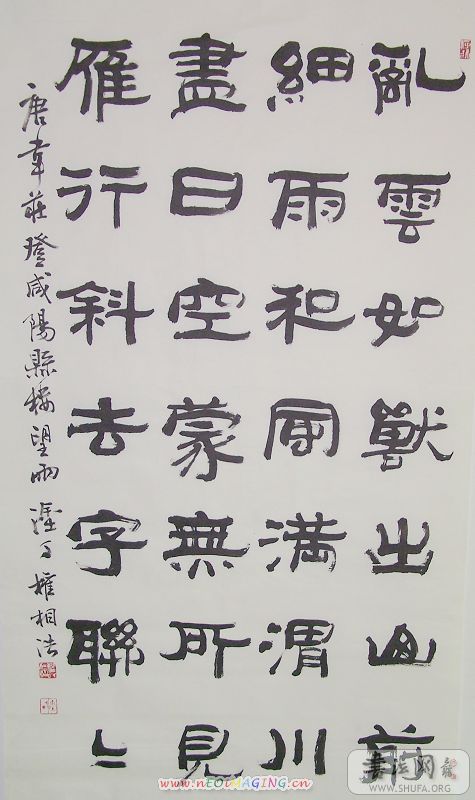 亂雲如獸出山前
細雨和風滿渭川
盡日空蒙無所見
雁行斜去字聯〻
唐韋莊登咸陽縣樓望雨 塗丁 權相浩
www.nEOiMAGING.cn
WWW.SHUFA.ORG